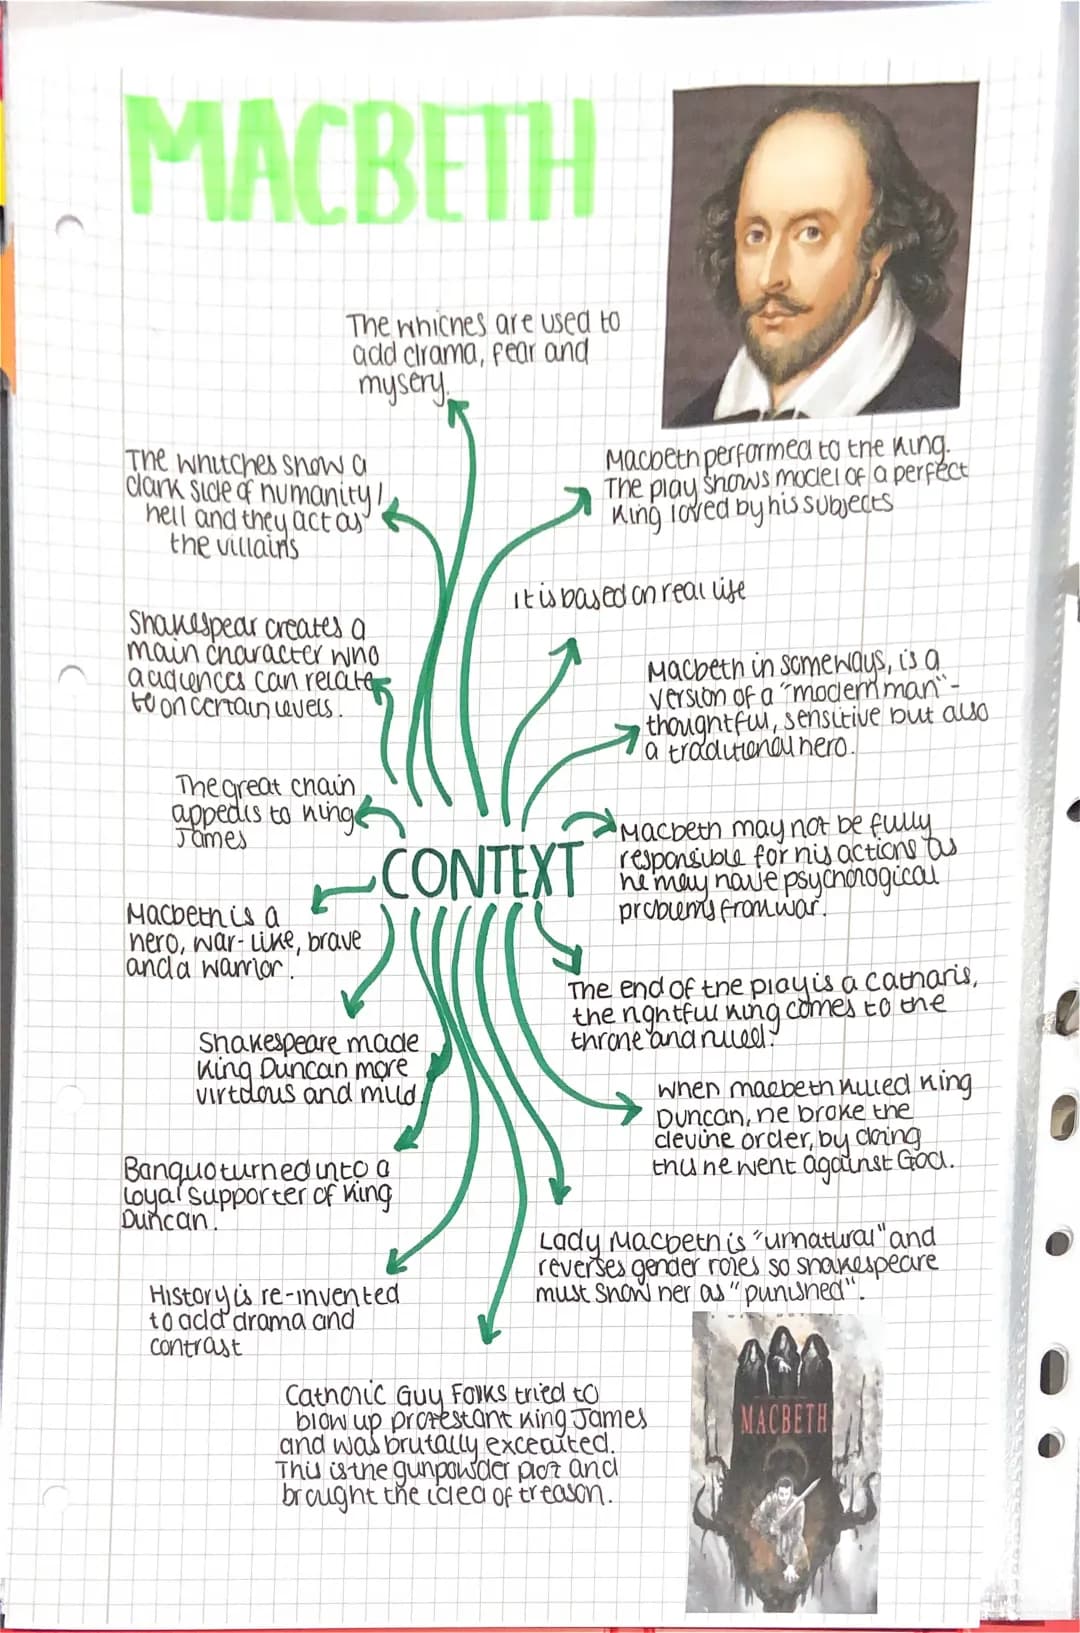 MACBETH
The whicnes are used to
add drama, fear and
mysery.
The whitches show a
dark side of humanity /
hell and they act as
the villains
Macbeth performed to the King.
The play shows model of a perfect
King loved by his subjects
It is based on real life
Shakespear creates a
main character who
audiences can relate
to on certain levels.
Macbeth in someways, is a
version of a "modern man"-
thoughtful, sensitive but also
a traditional hero.
The great chain
appeals to King
James
CONTEXT
Macbeth may not be fully
responsible for his actions as
he may have psychological
problems from war.
Macbeth is a
hero, war-like, brave
and a warrior.
The end of the play is a catharis,
the rightful King comes to the
throne and ruled.
Shakespeare made
King Duncan more
virtuous and mild.
When macbeth killed King
Duncan, he broke the
devine order, by doing
this he went against God.
Banquo turned into a
loyal supporter of King
Duncan.
Lady Macbeth is "unnatural" and
reverses gender roles so shakespeare
must show her as "punished".
History is re-invented
to add drama and
contrast
Catholic Guy Folks tried to
blow up protestant King James
and was brutally exceuted.
This is the gunpowder plot and
brought the idea of treason.
MACBETH